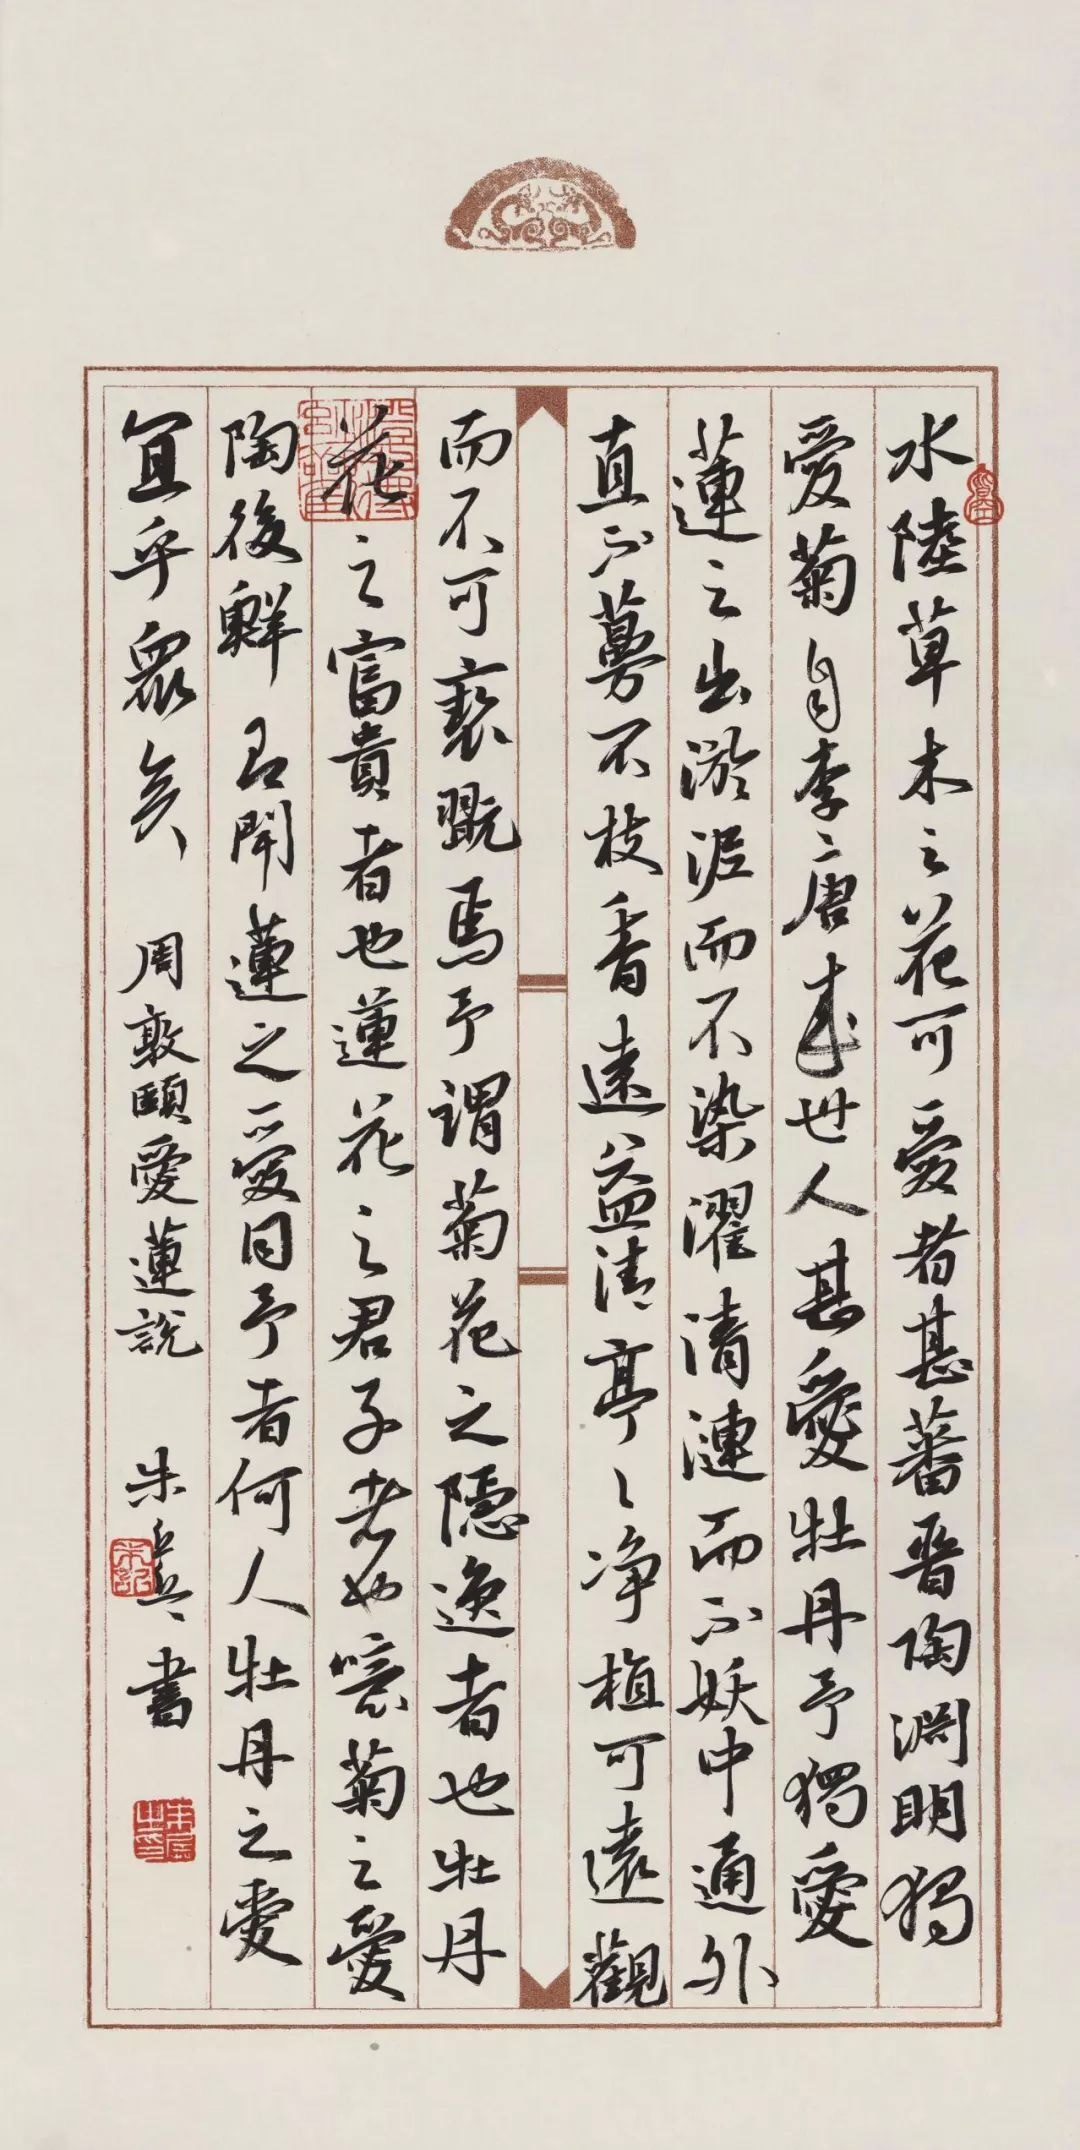 水陸草木之花可愛者甚蕃晉陶淵明獨
愛菊自李唐来世人甚愛牡丹予獨愛
蓮之出淤泥而不染濯清漣而不妖中通外
直不蔓不枝香遠益清亭〻净植可遠觀
而不可褻翫焉予謂菊花之隱逸者也牡丹
花之富貴者也蓮花之君子者也噫菊之愛
陶後鮮有聞蓮之愛同予者何人牡丹之愛
宜乎眾矣 周敦頤愛蓮說 朱 書